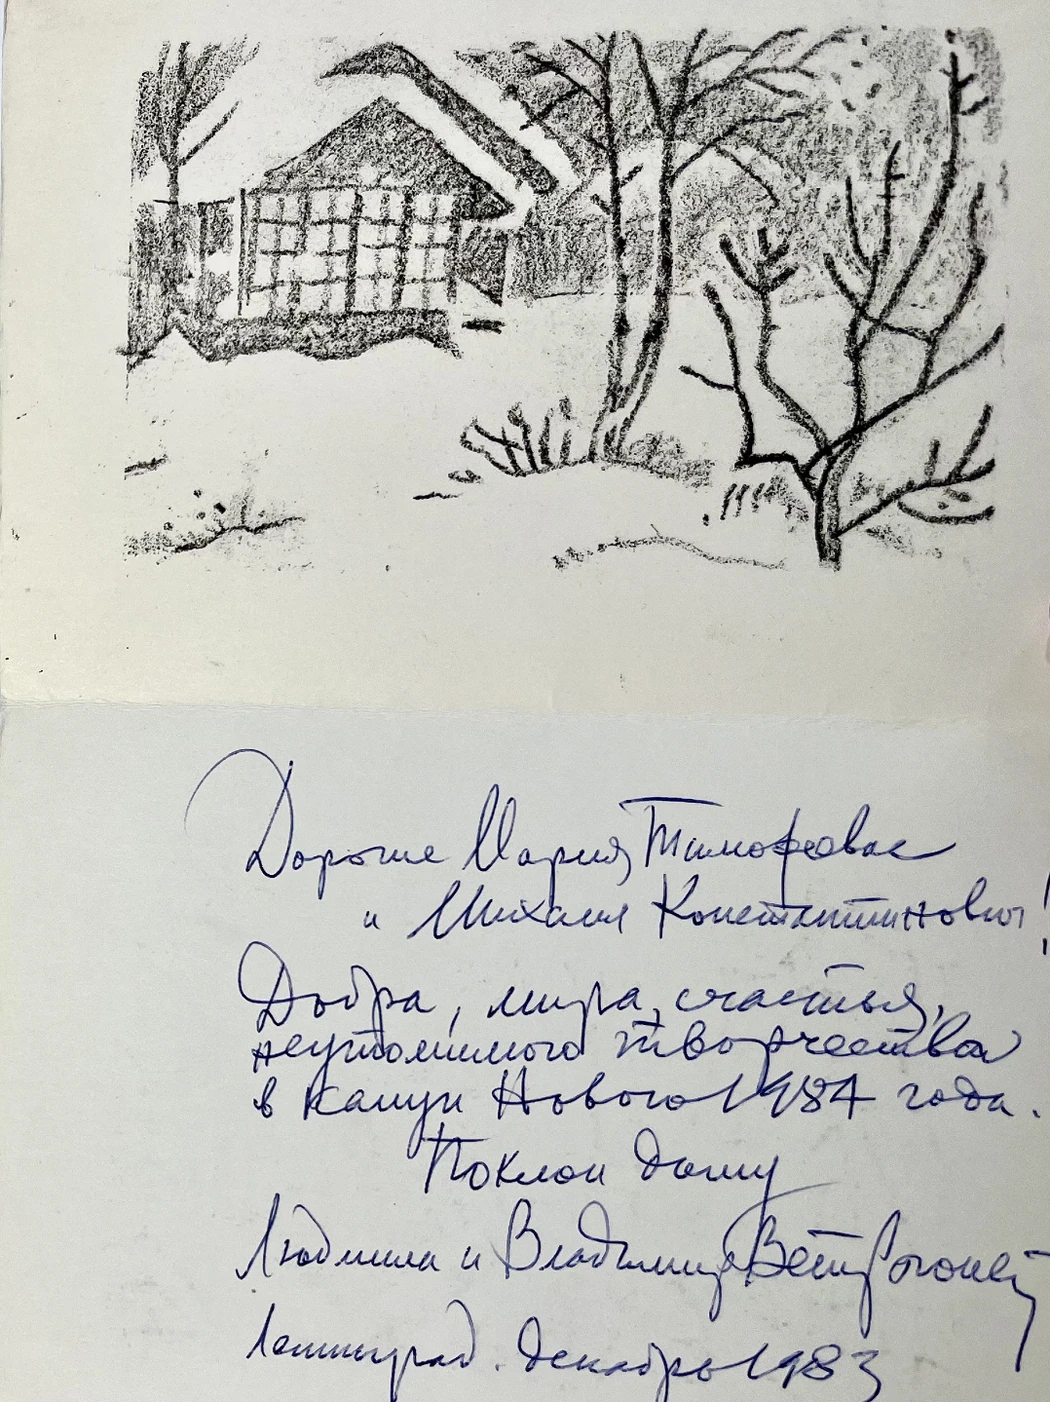 Дорогие Мария Тимофеевна
и Михаил Константинович!
Добра, мира, счастья,
неутомимого творчества
в канун Нового 1984 года.
Поклон дому
Людмила и Владимир Ветрогонские
Ленинград. декабрь 1983